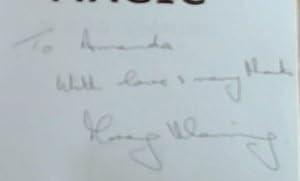 MAGIC
To Amanda
With love & many thanks